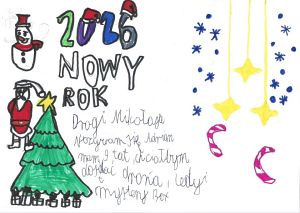 2026
NOWY
ROK
Drogi Mikołaju
Nazywam się Adrian
mam 9 lat chciałbym
dostać drona i Ledy i
Mystery Box